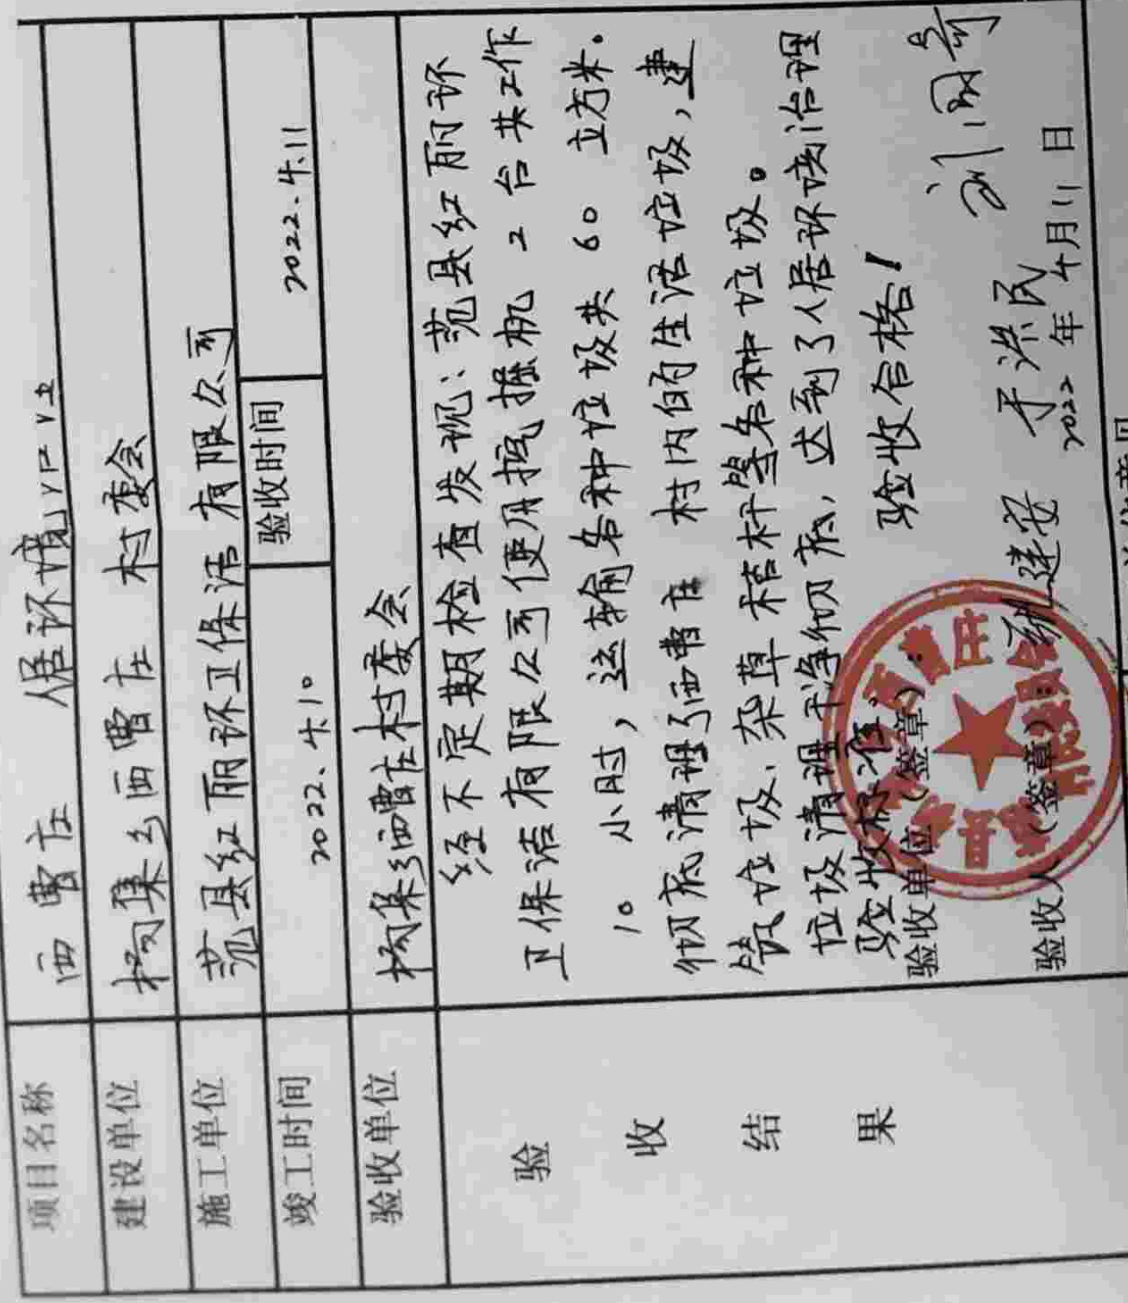 项目名称 西曹庄 人居环境
建设单位 杨集乡西曹庄 村委会
施工单位 范县红丽环卫保洁有限公司
竣工时间 2022.4.10 验收时间 2022.4.11
验收单位 杨集乡西曹庄村委会
验收结果
经不定期检查发现：范县红丽环
卫保洁有限公司使用挖掘机 2 台共工作
10 小时，运输各种垃圾共 60 立方米。
彻底清理了西曹庄 村内的生活垃圾，建
筑垃圾、杂草秸秆等各种垃圾。
垃圾清理干净彻底，达到了人居环境治理
验收标准。 验收合格！
验收单位（签章）：
验收人（签章） 建安 于洪民 刘国
2022年4月11日